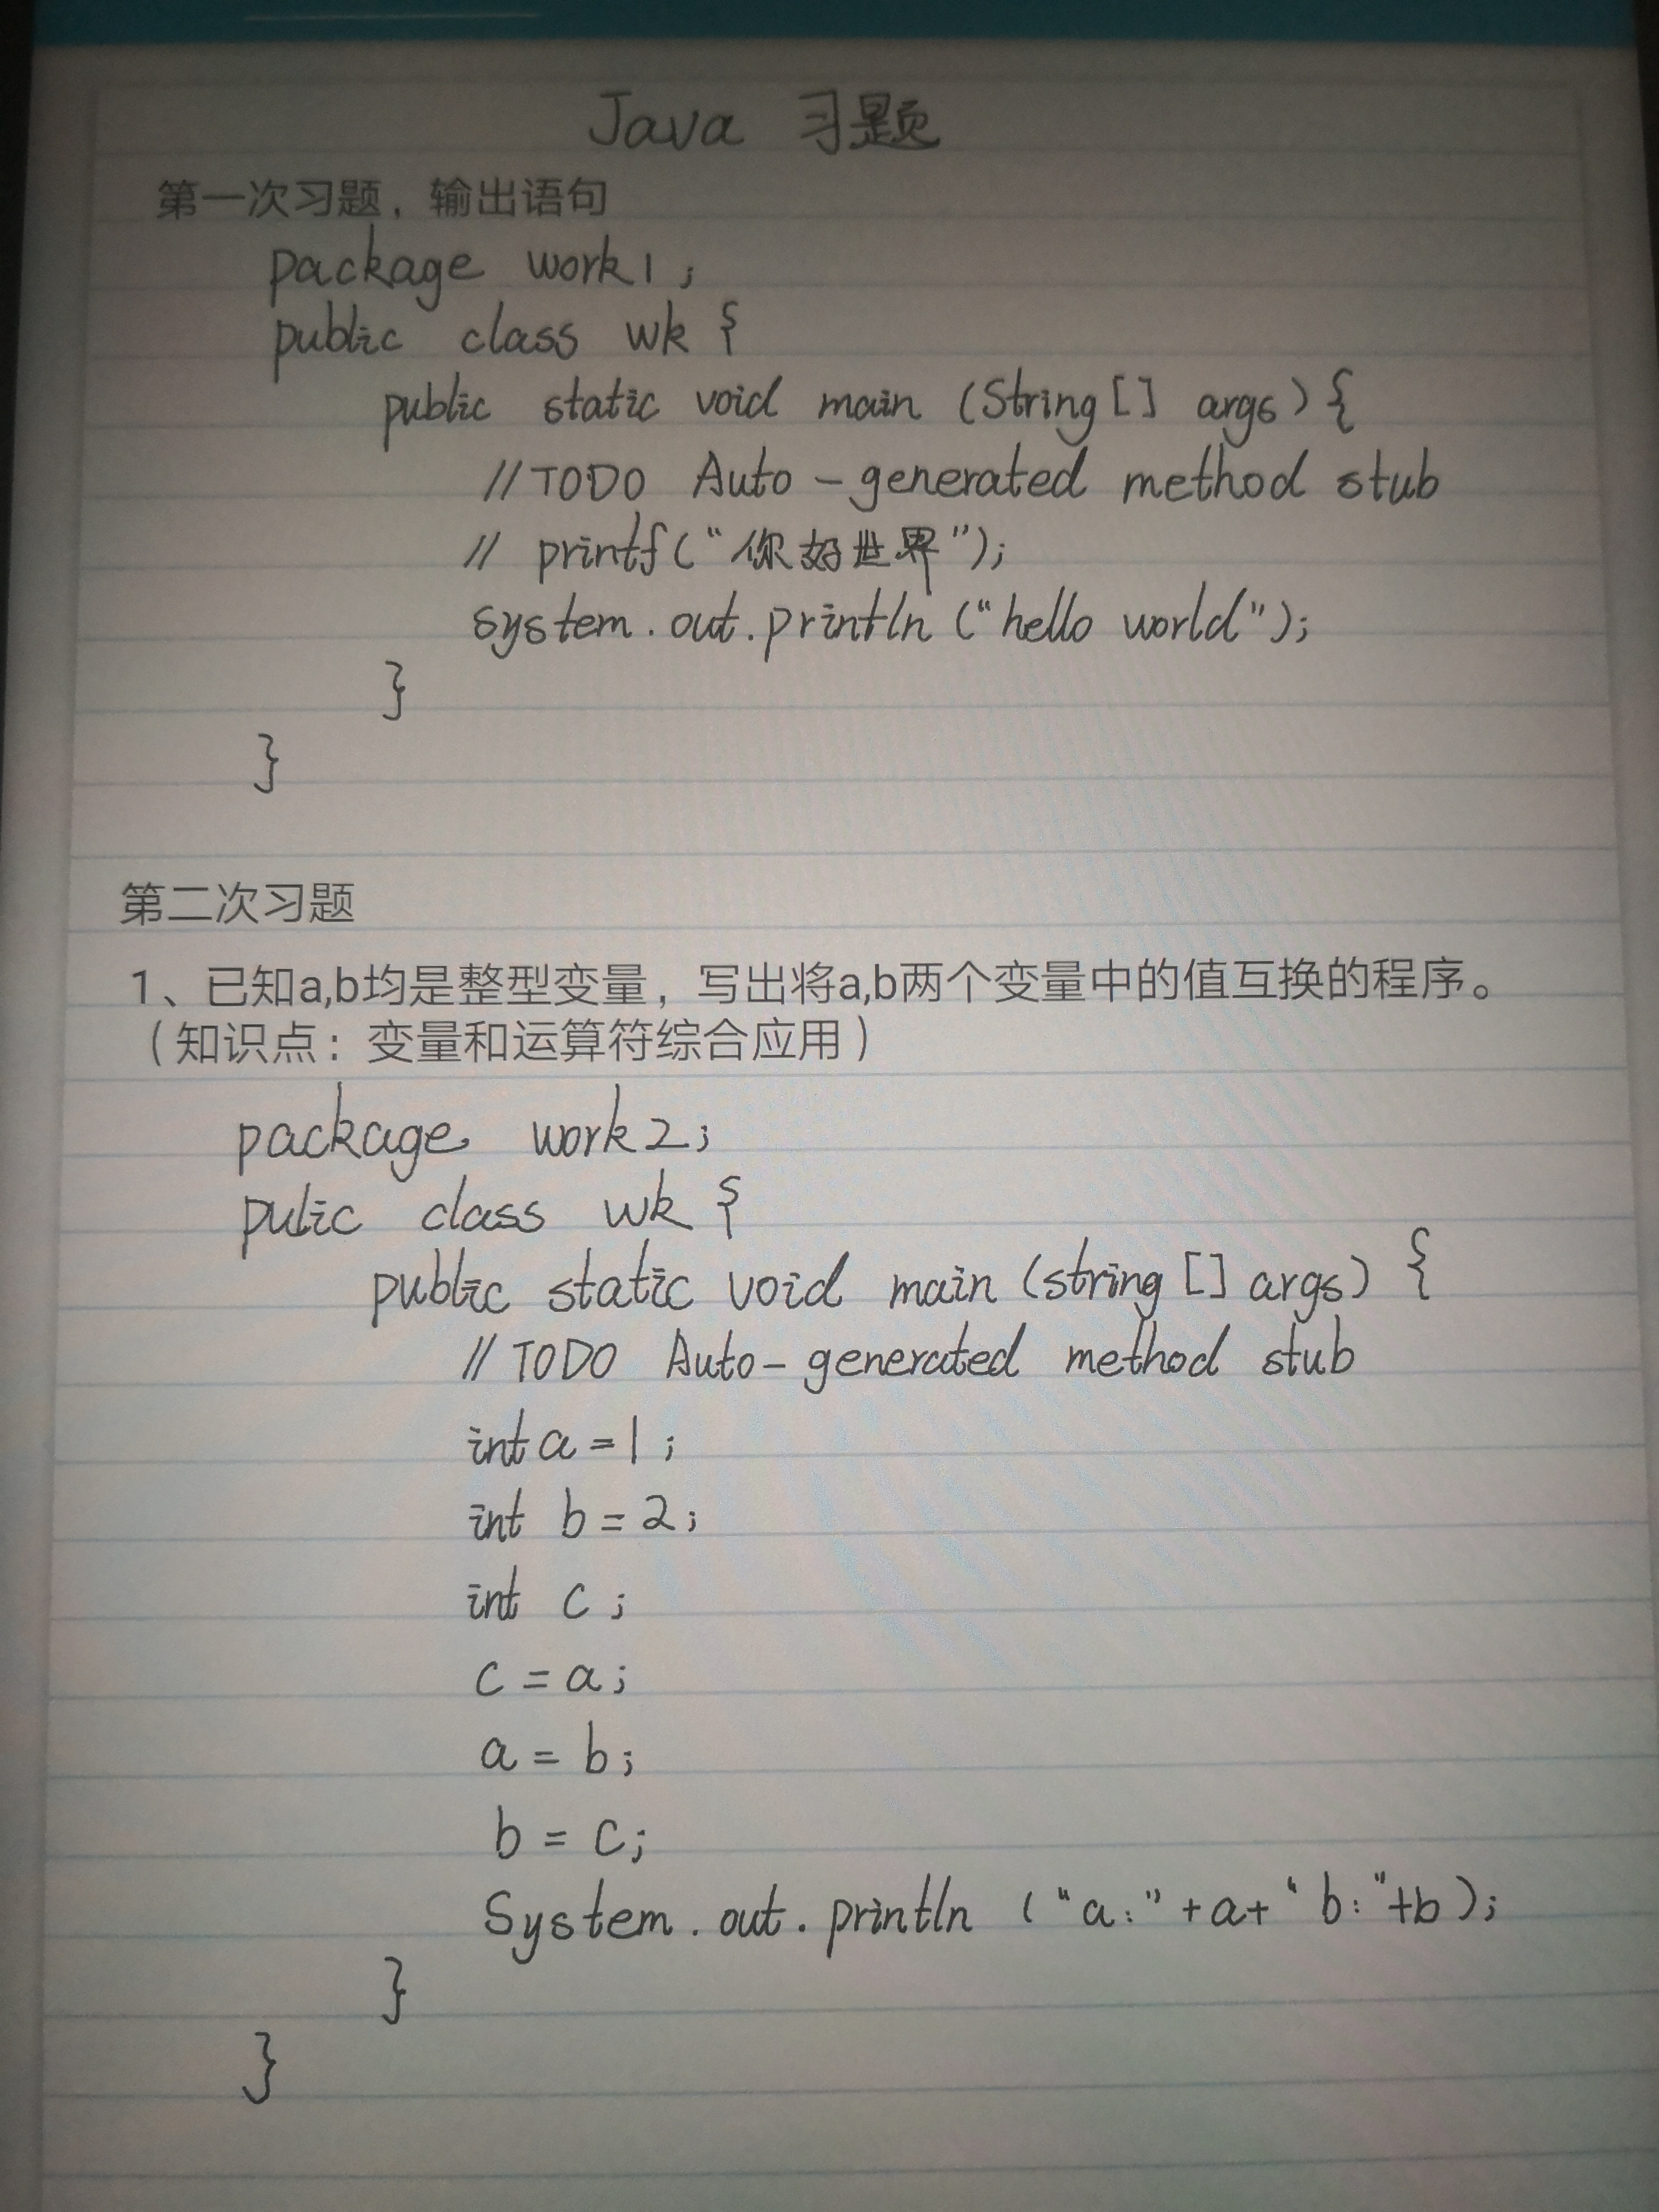 Java 习题
第一次习题，输出语句
package work1;
public class wk {
public static void main (String [] args) {
//TODO Auto-generated method stub
// printf("你好世界");
system.out.println ("hello world");
}
}
第二次习题
1、已知a,b均是整型变量，写出将a,b两个变量中的值互换的程序。
（知识点：变量和运算符综合应用）
package work2;
pulic class wk {
public static void main (string [] args) {
//TODO Auto-generated method stub
int a=1;
int b=2;
int c;
c=a;
a=b;
b=c;
System.out.println ("a:"+a+" b:"+b);
}
}